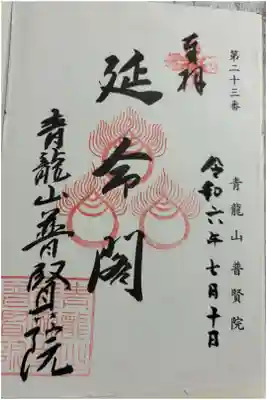 第二十三番 青龍山 普賢院
奉拝
令和六年七月十日
延命閣
青龍山普賢院